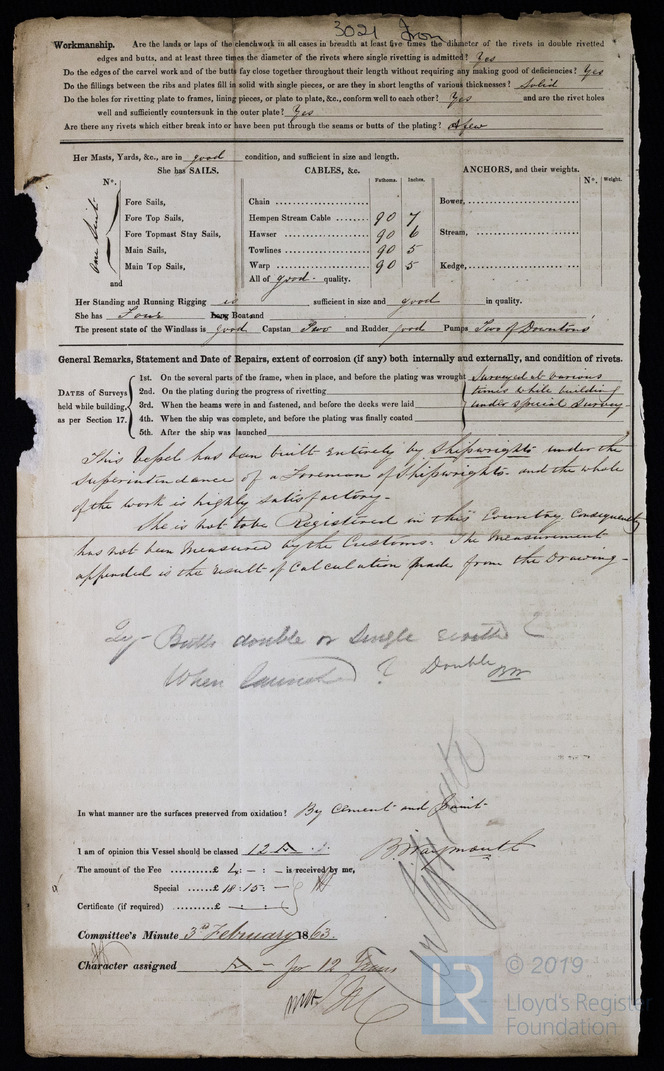 3021 Iron
Workmanship. Are the lands or laps of the clenchwork in all cases in breadth at least five times the diameter of the rivets in double rivetted
edges and butts, and at least three times the diameter of the rivets where single rivetting is admitted? Yes
Do the edges of the carvel work and of the butts fay close together throughout their length without requiring any making good of deficiencies? Yes
Do the fillings between the ribs and plates fill in solid with single pieces, or are they in short lengths of various thicknesses? Solid
Do the holes for rivetting plate to frames, lining pieces, or plate to plate, &c., conform well to each other? Yes and are the rivet holes
well and sufficiently countersunk in the outer plate? Yes
Are there any rivets which either break into or have been put through the seams or butts of the plating? A few
Her Masts, Yards, &c., are in good condition, and sufficient in size and length.
She has SAILS. CABLES, &c. ANCHORS, and their weights.
N°. Fathoms. Inches. N°. Weight.
One Suit
Fore Sails, Chain Bower,
Fore Top Sails, Hempen Stream Cable 90 7
Fore Topmast Stay Sails, Hawser 90 6 Stream,
Main Sails, Towlines 90 5
Main Top Sails, Warp 90 5 Kedge,
and All of good quality.
Her Standing and Running Rigging is sufficient in size and good in quality.
She has Four Long Boat and
The present state of the Windlass is good Capstan Two and Rudder good Pumps Two of Downtons
General Remarks, Statement and Date of Repairs, extent of corrosion (if any) both internally and externally, and condition of rivets.
DATES of Surveys held while building, as per Section 17.
1st. On the several parts of the frame, when in place, and before the plating was wrought Surveyed at various
2nd. On the plating during the progress of rivetting times while building
3rd. When the beams were in and fastened, and before the decks were laid under special survey
4th. When the ship was complete, and before the plating was finally coated
5th. After the ship was launched
This Vessel has been built entirely by Shipwrights under the
Superintendance of a Foreman of Shipwrights and the whole
of the work is highly satisfactory.
She is not to be Registered in this Country Consequently
has not been Measured by the Customs. The Measurement
appended is the result of Calculation made from the Drawing
Qy Butts double or Single rivetted?
When launched? Double
In what manner are the surfaces preserved from oxidation? By Cement and Paint
I am of opinion this Vessel should be classed 12 A
B Waymouth
The amount of the Fee £ 4: - : - is received by me,
Special £ 18: 15: -
Certificate (if required) £ - : - : -
Committee's Minute 3rd February 1863.
Character assigned A - for 12 Years
© 2019
LR Lloyd's Register
Foundation